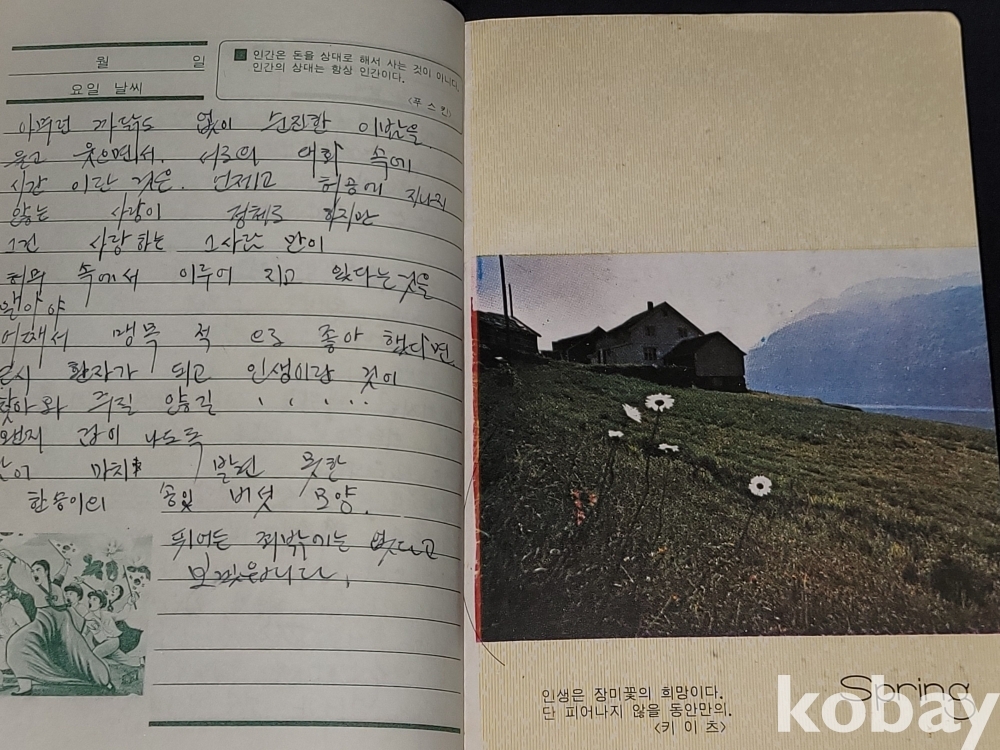 월 일
요일 날씨
인간은 돈을 상대로 해서 사는 것이 아니다.
인간의 상대는 항상 인간이다.
<푸 스 킨>
아무런 까닭도 없이 순진한 이밤을
울고 웃으면서. 서로의 대화 속에
시간 이란 것은. 언제고 허공에 지나지
않는 사랑이 정체로 하지만
그건 사랑하는 그사람 만이
허의 속에서 이루어 지고 있다는것을
알아야
어째서 맹목 적 으로 좋아 했다면
환자가 되고 인생이란 것이
찾아와 주질 않길 . . . . .
왠지 감이 나도록
마치 발견 못한
한송이의 송잎 버섯 모양.
뛰어든 죄밖에는 없다고
보겠읍니다.
인생은 장미꽃의 희망이다.
단 피어나지 않을 동안만의.
<키 이 츠>
Spring
kobay